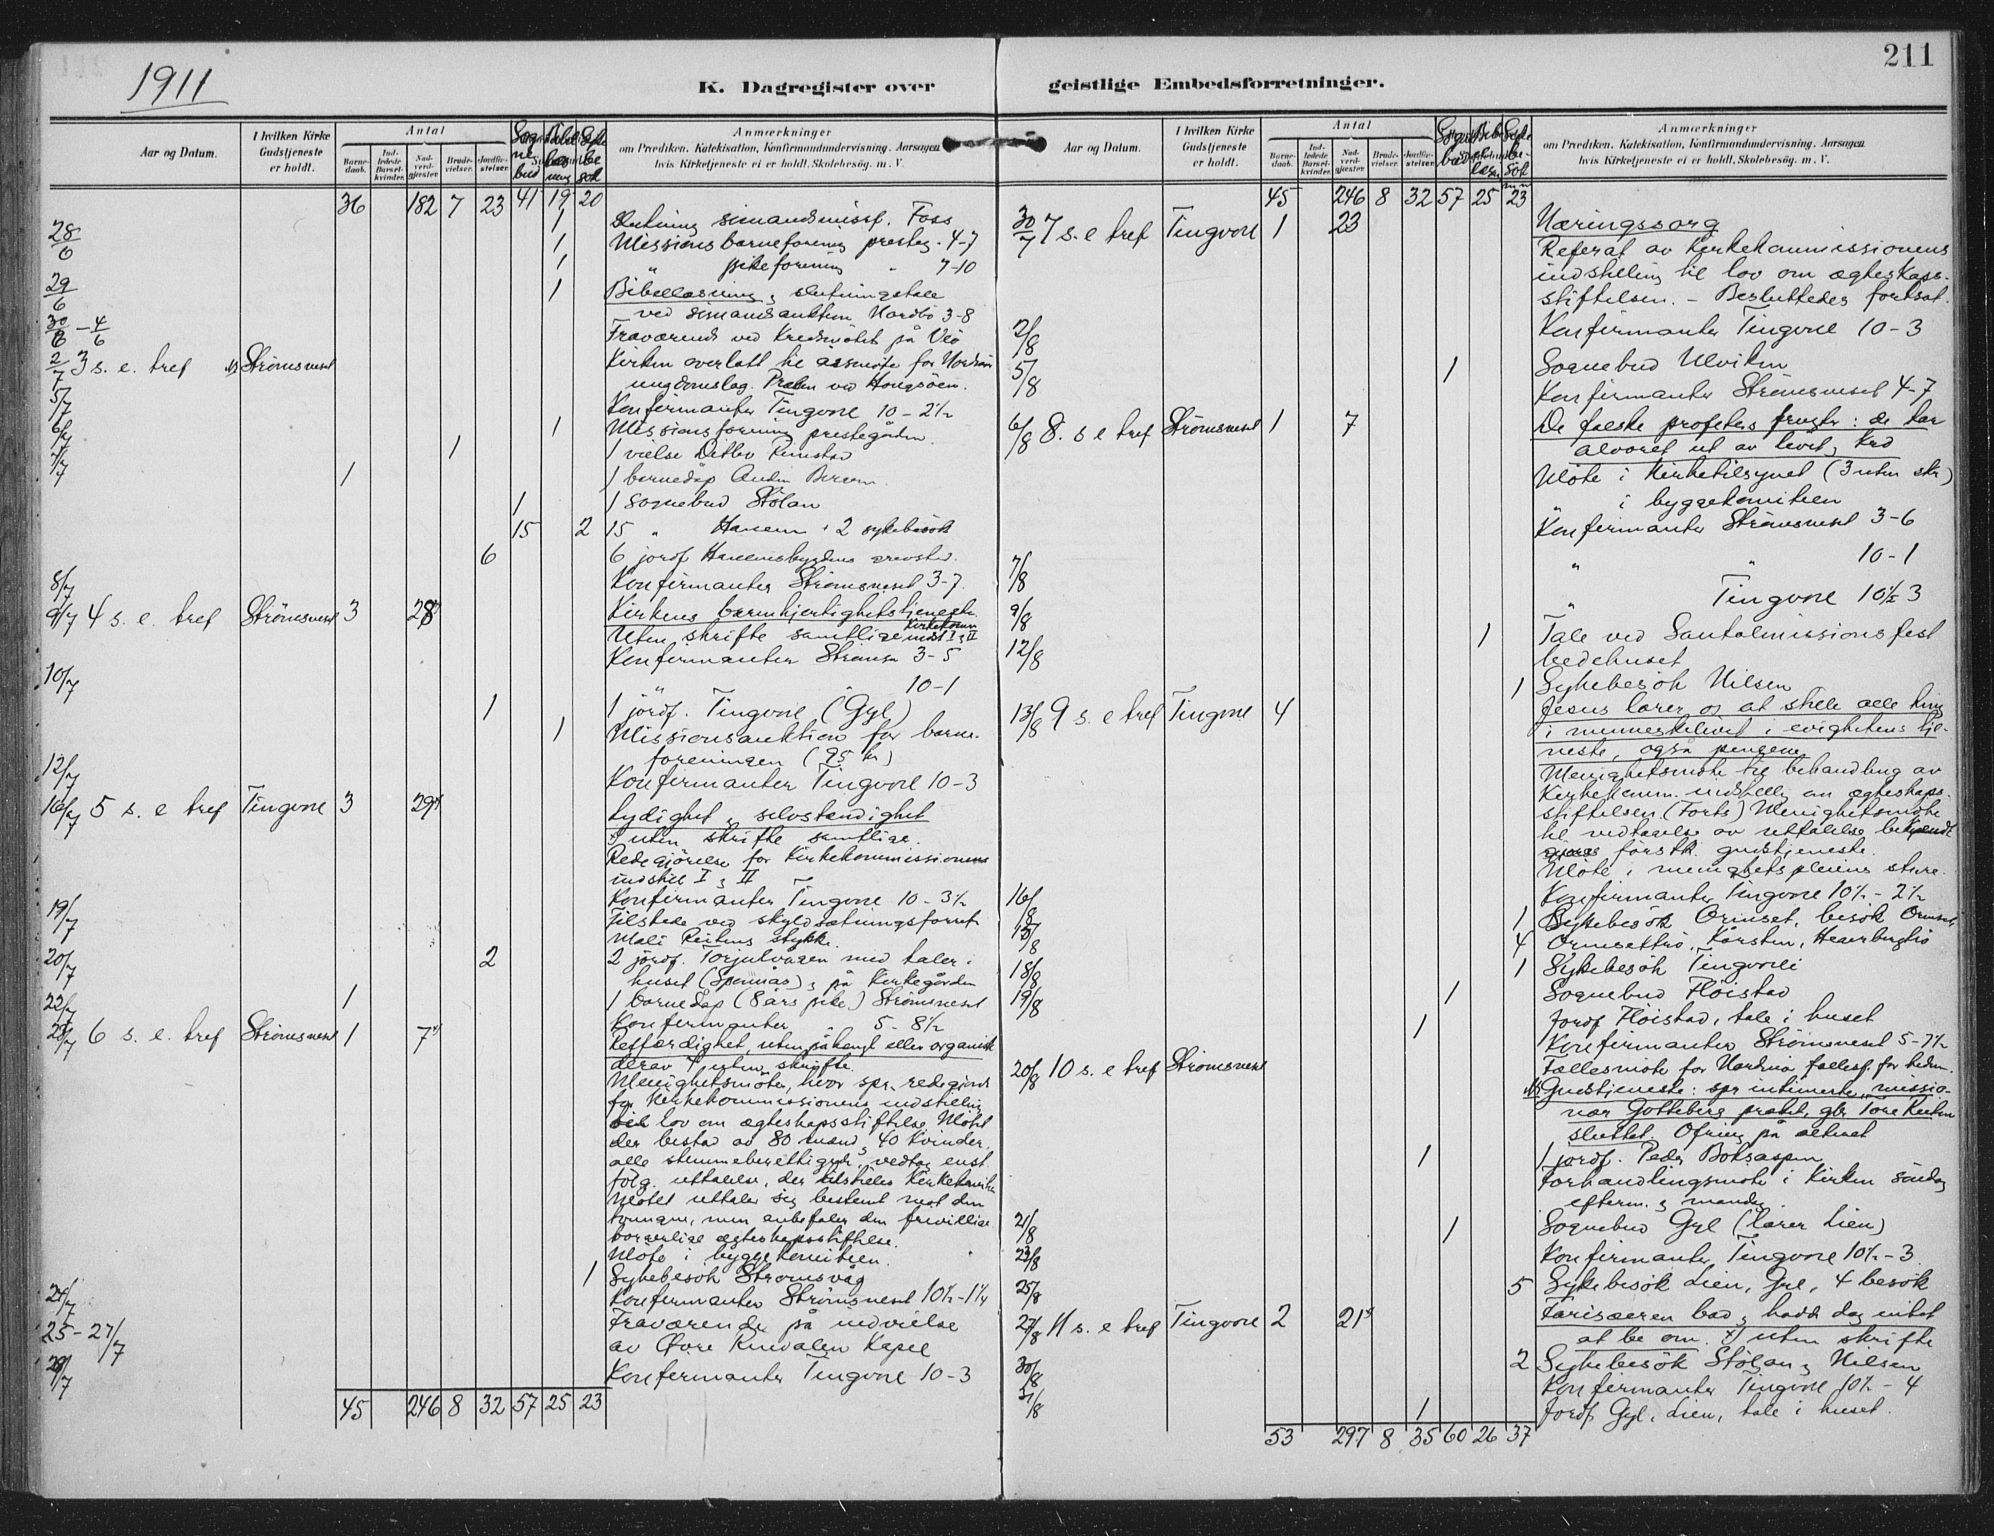 211
1911
K. Dagregister over
geistlige Embedsforretninger.
Aar og Datum.
I hvilken Kirke Gudstjeneste er holdt.
Antal
Barne-daab.
Ind-ledede Barsel-kvinder.
Nad-verd-gjæster
Brude-vielser.
Jordfæ-stelser.
Sogne bud
Bibel læs ning
Syke be søk
Anmærkninger
om Prædiken. Katekisation, Konfirmandundervisning. Aarsagen
hvis Kirketjeneste ei er holdt. Skolebesøg. m. V.
36 182 7 23 41 19 20
28/6 1 Foss
1 Missions barneforening presteg. 4-7
1 " pikeforening " 7-10
29/6 1 Bibellæsning, slutningstale
ved Nordbø 3-8
30/6 - 4/6 Fraværende ved Kredsmötet på Veö
2/7 3 s. e. tref Strømsneset Kirken overlatt til for Nordmör
ungdomslag.
5/7 Konfirmanter Tingvoll 10 - 2½
6/7 1 Missionsforening prestegården.
7/7 1 1 vielse Rimstad
1 1 barnedåp
1 1 Soguebud Stölan
15 2 15 " Hanem + 2 sykebesök
6 6 jordf Hanemsbygdens gravsted.
8/7 Konfirmanter Strömsneset 3-7.
9/7 4 s. e. tref Strømsneset 3 28 Kirkens barmhjertighetstjeneste
Uten skrifte samtlige Kirkekomm indst I & II
Konfirmanter Strömsn 3-5
10/7 " " 10-1
1 1 jordf. Tingvoll (Gyl)
1 Missionsauktion for barne-
foreningen (95 kr)
12/7 Konfirmanter Tingvoll 10-3
16/7 5 s. e tref Tingvoll 3 29 Lydighet & selvstendighet
uten skrifte samtlige.
Redegjörelse for Kirkekommissionens
indstill I & II
Konfirmanter Tingvoll 10 - 3½
19/7 Tilstede ved skyldsætningsforret
stykke.
20/7 2 2 jordf. Torjulvågen med taler i
huset & på Kirkegården
22/7 1 1 barnedåp (8 års pike) Strömsneset
Konfirmanter " 5 - 8½
23/7 6 s. e. tref Strømsneset 1 7 Retfærdighet, uten påhengt eller organisk
derav uten skrifte.
Menighetsmöte, hvor spr. redegjorde
for Kirkekommissionens indstilling
til lov om ægteskapsstiftelse. Mötet
der bestod av 80 mænd, 40 Kvinder,
alle stemmeberettigede, vedtog enst
fölg. uttalelse, der tilstilles Kirkekomiteen
Mötet uttaler sig bestemt mot den
tvungne, men anbefaler den frivillige
borgerlige ægteskapsstiftelse.
Möte i byggekomiteen.
1 Sykebesök Strømsvåg
24/7 Konfirmanter Strømsneset 10½-1¼
25 - 27/7 Fraværende på indvielse
av Øvre Rindalen Kapel
Konfirmanter Tingvoll 10-3
45 246 8 32 57 25 23
Aar og Datum.
I hvilken Kirke Gudstjeneste er holdt.
Antal
Barne-daab.
Ind-ledede Barsel-kvinder.
Nad-verd-gjæster
Brude-vielser.
Jordfæ-stelser.
Sogne bud
Bibel læsn
Syke be-sök
Anmærkninger
om Prædiken. Katekisation, Konfirmandundervisning. Aarsagen
hvis Kirketjeneste ei er holdt. Skolebesøg. m. V.
45 246 8 32 57 25 23
30/7 7 s. e tref Tingvoll 1 23 Næringssorg
Referat av Kirkekommissionens
indstilling til lov om ægteskaps-
stiftelsen. - Besluttedes fortsat.
2/8 Konfirmanter Tingvoll 10-3
5/8 1 Sognebud Ulviken
Konfirmanter Strömsneset 4-7
6/8 8. s e tref Strømsneset 1 7 De falske profeters frugter: de tar
alvoret ut av livet,
Möte i Kirketilsynet
" i byggekomiteen
Konfirmanter Strömsneset 3-6
7/8 " " 10-1
9/8 " Tingvoll 10½ 3
12/8 1 Tale ved Santalmissionsfest
bedehuset
1 Sykebesök Nilsen
13/8 9 s. e tref Tingvoll 4 Jesus lærer os at stille alle ting
i menneskelivet i evighetens tje-
neste, også pengene
Menighetsmöte til behandling av
Kirkekomm. indstilling om ægteskaps-
stiftelsen (Forts) Menighetsmöte
til vedtagelse av uttalelse bekjendt-
gjöres förstk. gudstjeneste.
Möte i menighetspleiens styre.
16/8 Konfirmanter Tingvoll 10½ - 2½
1 Sykebesök Ormset, besök Ormset
4 Ormsettrö, Karsten,
18/8 1 Sykebesök Tingvoll
19/8 1 Sognebud Höistad
1 Jordf Höistad, tale i huset
Konfirmanter Strömsneset 5-7½
20/8 10 s. e tref Strømsneset Fællesmöte for Nordmör
Gudstjeneste: spr intimerte, missio-
nær Gotteberg prækte, Tore
sluttet. Ofring på alteret
1 1 jordf. Peder Boksaspen
Forhandlingsmöte i Kirken söndag
efterm. & mandag
21/8 1 Sognebud Gyl (lærer Lien)
23/8 Konfirmanter Tingvoll 10½ - 3
25/8 5 Sykebesök Lien, Gyl, 4 besök
27/8 11 s. e tref Tingvoll 2 21 Farisæeren bad & hadde dog intet
at be om. uten skrifte
30/8 2 Sykebesök Stölan & Nilsen
Konfirmanter Tingvoll 10½ - 4
31/8 1 Jordf Gyl, Lien, tale i huset.
53 297 8 35 60 26 37